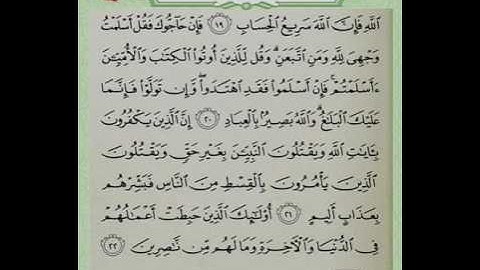 ٱللَّهِ فَإِنَّ ٱللَّهَ سَرِيعُ ٱلْحِسَابِ ١٩ فَإِنْ حَآجُّوكَ فَقُلْ أَسْلَمْتُ
وَجْهِىَ لِلَّهِ وَمَنِ ٱتَّبَعَنِ ۗ وَقُل لِّلَّذِينَ أُوتُوا۟ ٱلْكِتَـٰبَ وَٱلْأُمِّيِّـۧنَ
ءَأَسْلَمْتُمْ ۚ فَإِنْ أَسْلَمُوا۟ فَقَدِ ٱهْتَدَوا۟ ۖ وَّإِن تَوَلَّوْا۟ فَإِنَّمَا
عَلَيْكَ ٱلْبَلَـٰغُ ۗ وَٱللَّهُ بَصِيرٌۢ بِٱلْعِبَادِ ٢٠ إِنَّ ٱلَّذِينَ يَكْفُرُونَ
بِـَٔايَـٰتِ ٱللَّهِ وَيَقْتُلُونَ ٱلنَّبِيِّـۧنَ بِغَيْرِ حَقٍّ وَيَقْتُلُونَ
ٱلَّذِينَ يَأْمُرُونَ بِٱلْقِسْطِ مِنَ ٱلنَّاسِ فَبَشِّرْهُم
بِعَذَابٍ أَلِيمٍ ٢١ أُو۟لَـٰٓئِكَ ٱلَّذِينَ حَبِطَتْ أَعْمَـٰلُهُمْ
فِى ٱلدُّنْيَا وَٱلْـَٔاخِرَةِ وَمَا لَهُم مِّن نَّـٰصِرِينَ ٢٢